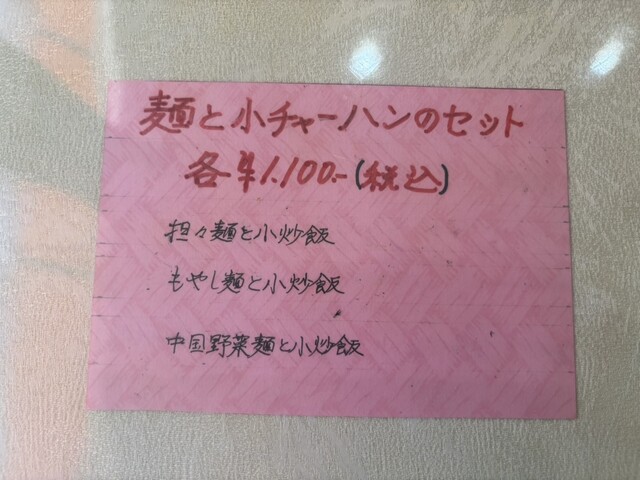 麺と小チャーハンのセット
各¥1.100-(税込)
担々麺と小炒飯
もやし麺と小炒飯
中国野菜麺と小炒飯